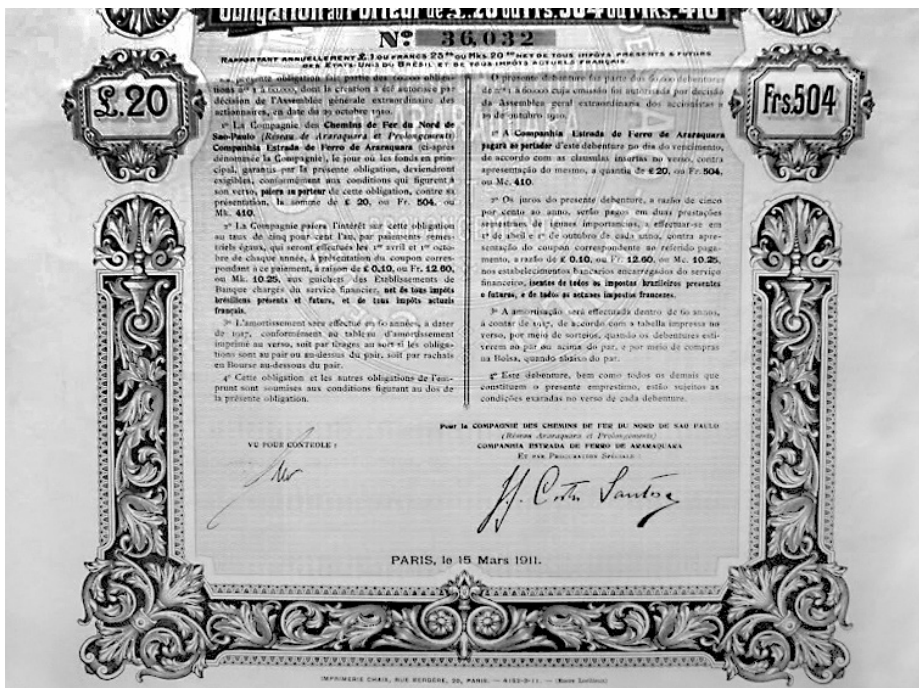 Obligation au Porteur de £. 20 ou Frs. 504 ou Mks. 410
Nº 36,032
RAPPORTANT ANNUELLEMENT £ 1 OU FRANCS 25 20 OU MKS. 20 50 NET DE TOUS IMPÔTS PRÉSENTS & FUTURS
DES ÉTATS-UNIS DU BRÉSIL ET DE TOUS IMPÔTS ACTUELS FRANÇAIS.
£.20
La présente obligation fait partie des 60.000 obliga-
tions nos 1 à 60.000, dont la création a été autorisée par
décision de l'Assemblée générale extraordinaire des
actionnaires, en date du 29 octobre 1910.
1º La Compagnie des Chemins de Fer du Nord de
Sao-Paulo (Réseau de Araraquara et Prolongements)
Companhia Estrada de Ferro de Araraquara (ci-après
dénommée la Compagnie), le jour où les fonds en prin-
cipal, garantis par la présente obligation, deviendront
exigibles, conformément aux conditions qui figurent à
son verso, paiera au porteur de cette obligation, contre sa
présentation, la somme de £ 20, ou Fr. 504, ou
Mk. 410.
2º La Compagnie paiera l'intérêt sur cette obligation
au taux de cinq pour cent l'an, par paiements semes-
triels égaux, qui seront effectués les 1er avril et 1er octo-
bre de chaque année, à présentation du coupon corres-
pondant à ce paiement, à raison de £ 0.10, ou Fr. 12.60,
ou Mk. 10.25, aux guichets des Établissements de
Banque chargés du service financier, net de tous impôts
brésiliens présents et futurs, et de tous impôts actuels
français.
3º L'amortissement sera effectué en 60 années, à dater
de 1917, conformément au tableau d'amortissement
imprimé au verso, soit par tirages au sort si les obliga-
tions sont au pair ou au-dessus du pair, soit par rachats
en Bourse au-dessous du pair.
4º Cette obligation et les autres obligations de l'em-
prunt sont soumises aux conditions figurant au dos de
la présente obligation.
Frs.504
O presente debenture faz parte dos 60.000 debentures
de nos 1 a 60.000 cuja emissão foi autorisada por decisão
da Assemblea geral extraordinaria dos accionistas a
29 de outubro 1910.
1º A Companhia Estrada de Ferro de Araraquara
pagará ao portador d'este debenture no dia do vencimento,
de accordo com as clausulas insertas no verso, contra
apresentação do mesmo, a quantia de £ 20, ou Fr. 504,
ou Mc. 410.
2º Os juros do presente debenture, a razão de cinco
por cento ao anno, serão pagos em duas prestações
semestraes de iguaes importancias, a effectuar-se em
1º de abril e 1º de outubro de cada anno, contra apre-
sentação do coupon correspondente ao referido paga-
mento, a razão de £ 0.10, ou Fr. 12.60, ou Mc. 10.25,
nos estabelecimentos bancarios encarregados do serviço
financeiro, isentos de todos os impostos brazileiros presentes
e futuros, e de todos os actuaes impostos francezes.
3º A amortisação será effectuada dentro de 60 annos,
à contar de 1917, de accordo com a tabella impressa no
verso, por meio de sorteios, quando os debentures esti-
verem ao par ou acima do par, e por meio de compras
na Bolsa, quando abaixo do par.
4º Este debenture, bem como todos os demais que
constituem o presente emprestimo, estão sujeitos as
condições exaradas no verso de cada debenture.
Pour la COMPAGNIE DES CHEMINS DE FER DU NORD DE SAO PAULO
(Réseau Araraquara et Prolongements)
COMPANHIA ESTRADA DE FERRO DE ARARAQUARA
ET PAR PROCURATION SPÉCIALE :
VU POUR CONTROLE :
PARIS, le 15 Mars 1911.
IMPRIMERIE CHAIX, RUE BERGÈRE, 20, PARIS. — 4152-3-11. — (Encre Lorilleux)